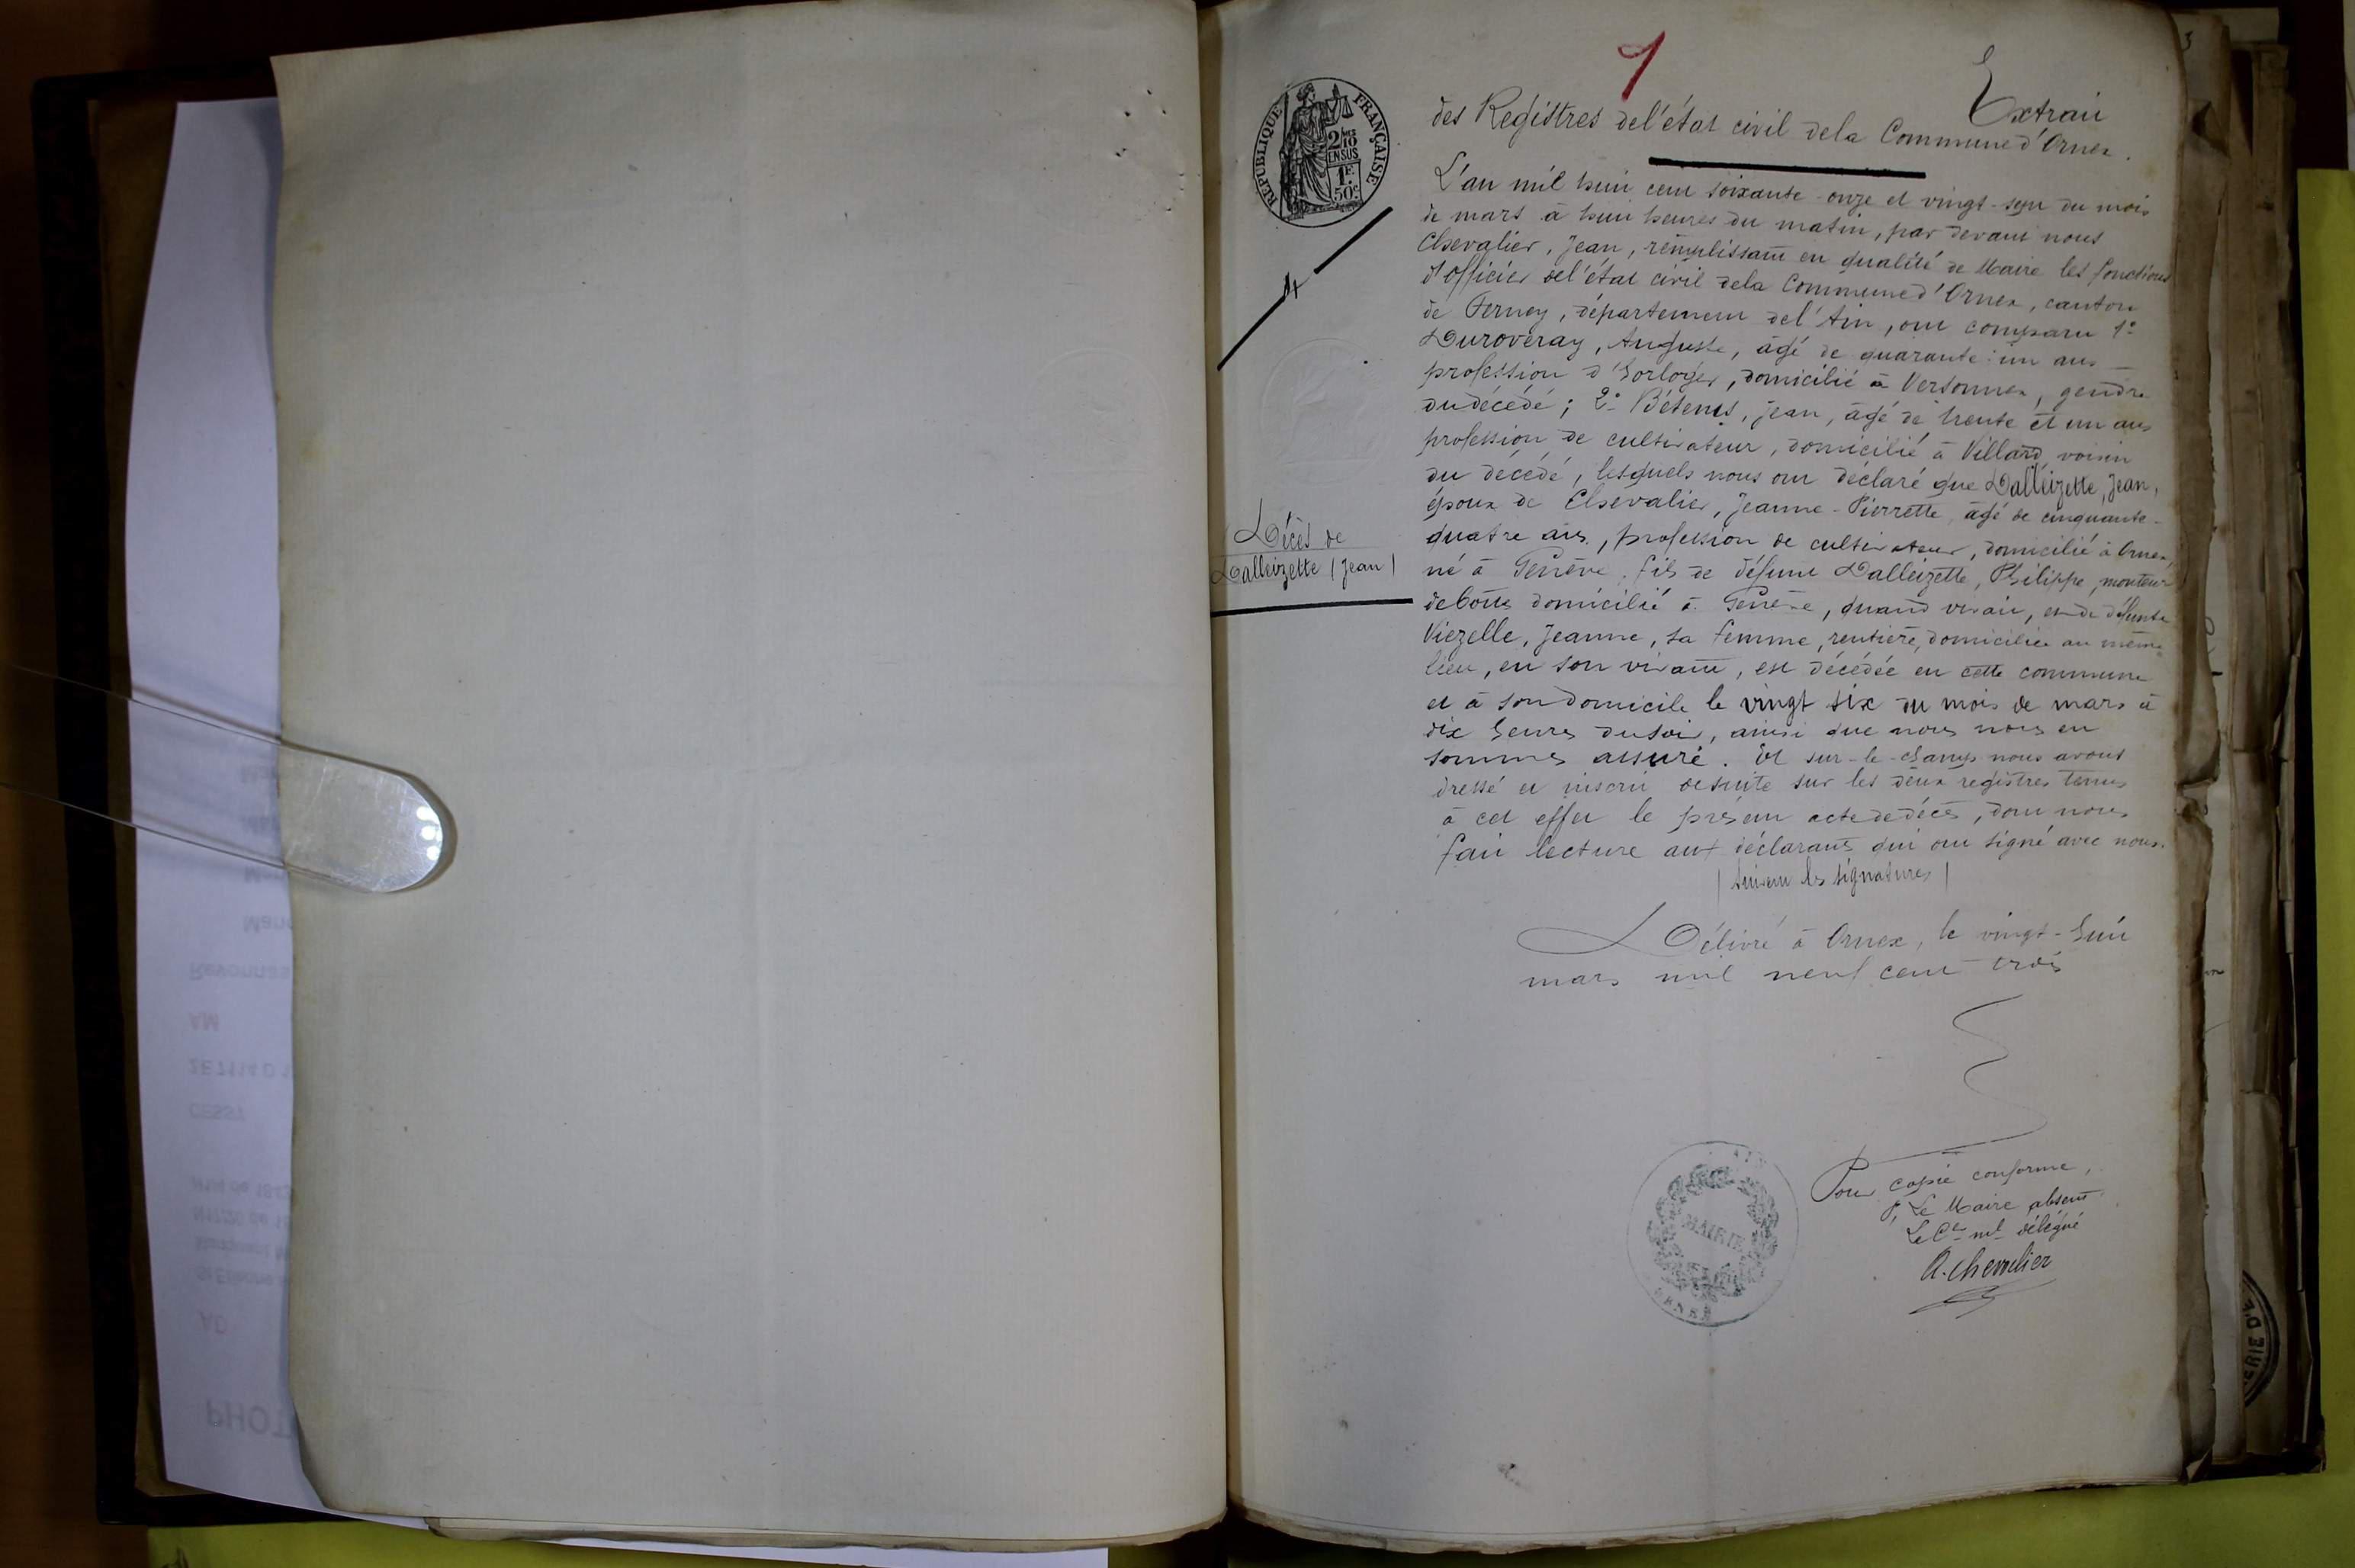 9
3
Extrait
des Registres de l'état civil de la Commune d'Ornex.
RÉPUBLIQUE FRANÇAISE
2/10
EN SUS
1F.
50c.
L'an mil huit cent soixante-onze et vingt-sept du mois
de mars à huit heures du matin, par devant nous
Chevalier, Jean, remplissant en qualité de Maire les fonctions
d'officier de l'état civil de la Commune d'Ornex, canton
de Ferney, département de l'Ain, ont comparu 1°
Duroveray, Auguste, âgé de quarante-un ans
profession d'horloger, domicilié à Versonnex, gendre
du décédé; 2° Bétems, Jean, âgé de trente et un ans
profession de cultivateur, domicilié à Villard voisin
du décédé, lesquels nous ont déclaré que Dalleizette, Jean,
époux de Chevalier, Jeanne-Pierrette, âgé de cinquante-
quatre ans, profession de cultivateur, domicilié à Ornex,
né à Genève, fils de défunt Dalleizette, Philippe, monteur
de boîtes domicilié à Genève, quand vivait, et de défunte
Viezelle, Jeanne, sa femme, rentière, domiciliée au même
lieu, en son vivant, est décédée en cette commune
et à son domicile le vingt six du mois de mars à
dix heures du soir, ainsi que nous nous en
sommes assuré. Et sur-le-champ nous avons
dressé et inscrit de suite sur les deux registres tenus
à cet effet le présent acte de décès, dont nous
fait lecture aux déclarants qui ont signé avec nous.
(suivent les signatures)
Décès de
Dalleizette (Jean)
Délivré à Ornex, le vingt-huit
mars mil neuf cent trois
Pour copie conforme,
P. Le Maire absent
Le Cer mal délégué
A. Chevalier
MAIRIE